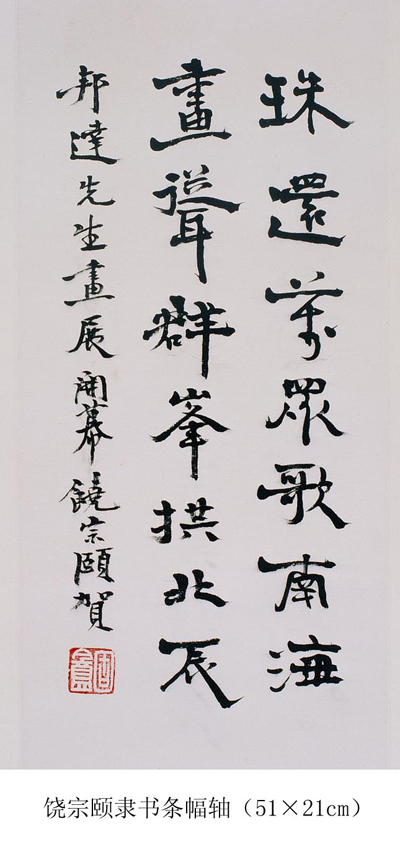 珠還萬眾歌南海
畫聳群峯拱北辰
邦達先生畫展開幕饒宗頤賀
饶宗颐隶书条幅轴（51×21cm）